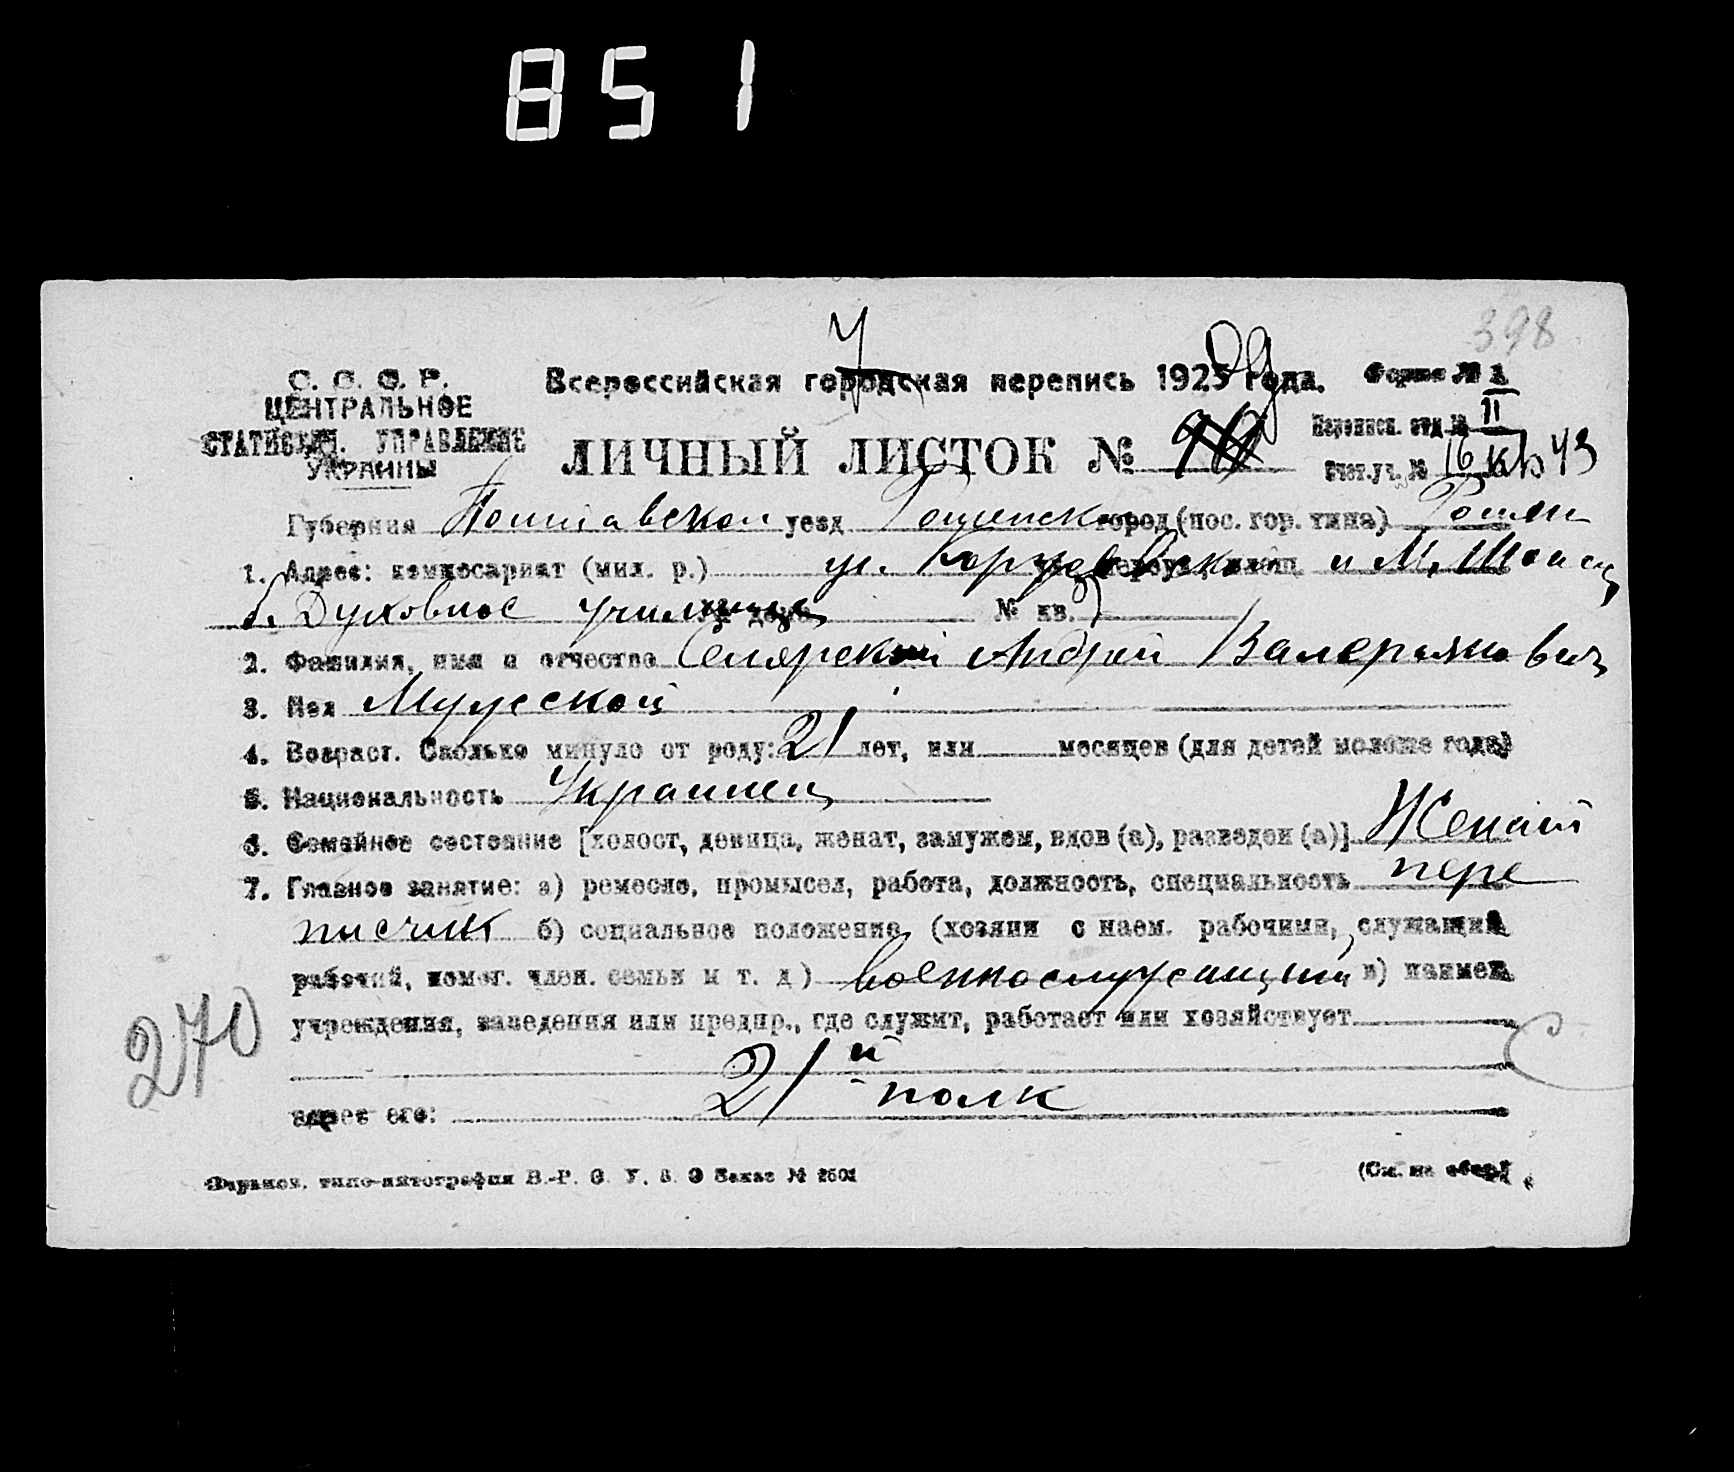 851
398
С. С. С. Р. Всероссийская городская перепись 1923 года. Форма № 1
ЦЕНТРАЛЬНОЕ
СТАТИСТИЧ. УПРАВЛЕНИЕ
УКРАИНЫ
ЛИЧНЫЙ ЛИСТОК №
Переписн. отд. № II
Счет. уч. № 16 кв 43
Губерния Полтавской уезд город (пос. гор. типа)
1. Адрес: комиссариат (мил. р.) ул. и М.
б. Духовное училище № кв.
2. Фамилия, имя и отчество Андрей Валерьянович
3. Пол Мужской
4. Возраст. Сколько минуло от роду: 21 лет, или месяцев (для детей моложе года)
5. Национальность Украинец
6. Семейное состояние [холост, девица, женат, замужем, вдов (а), разведен (а)] Женат
7. Главное занятие: а) ремесло, промысел, работа, должность, специальность пере
писчик б) социальное положение (хозяин с наем. рабочими, служащий
рабочий, помог. член. семьи и т. д) военнослужащий в) наимен.
учреждения, заведения или предпр., где служит, работает или хозяйствует
21й полк
адрес его:
270
типо-литография Заказ №
(См. на обор.)